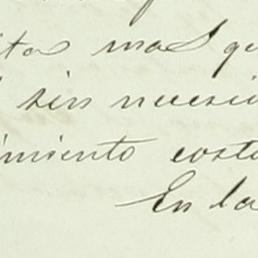 itos mas qu
sin necesi
imiento costa
En la